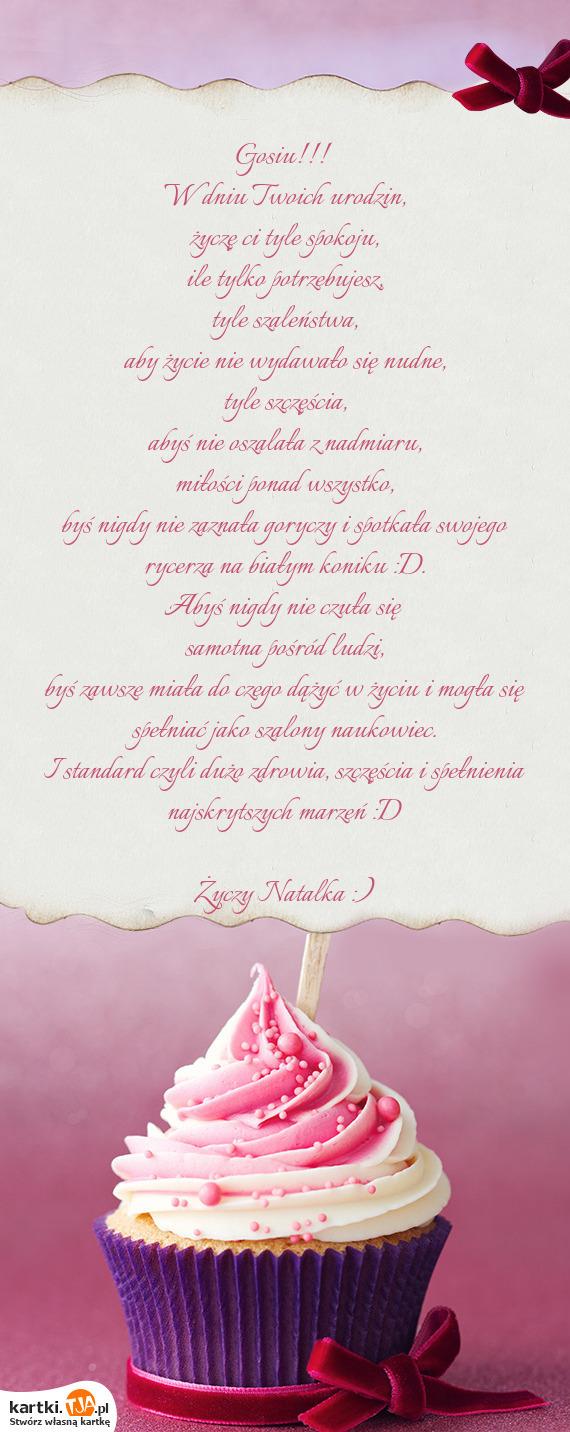 Gosiu!!!
W dniu Twoich urodzin,
życzę ci tyle spokoju,
ile tylko potrzebujesz,
tyle szaleństwa,
aby życie nie wydawało się nudne,
tyle szczęścia,
abyś nie oszalała z nadmiaru,
miłości ponad wszystko,
byś nigdy nie zaznała goryczy i spotkała swojego
rycerza na białym koniku :D.
Abyś nigdy nie czuła się
samotna pośród ludzi,
byś zawsze miała do czego dążyć w życiu i mogła się
spełniać jako szalony naukowiec.
I standard czyli dużo zdrowia, szczęścia i spełnienia
najskrytszych marzeń :D
Życzy Natalka :)
kartki.TJA.pl
Stwórz własną kartkę